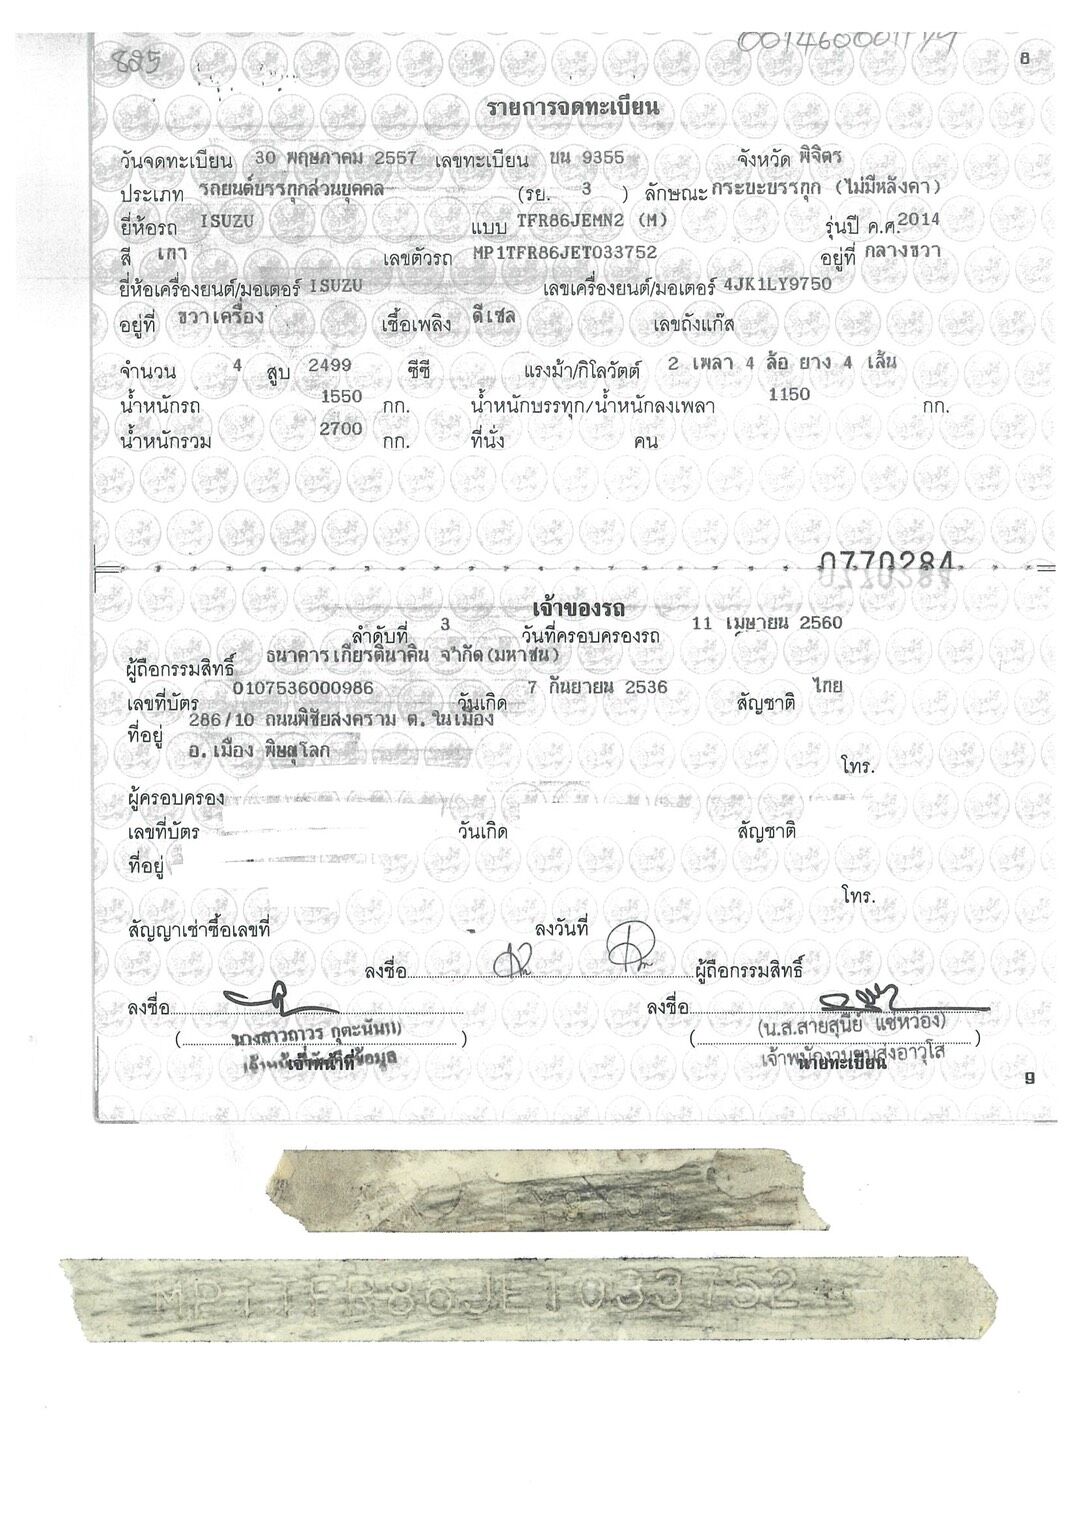 825
8
รายการจดทะเบียน
วันจดทะเบียน 30 พฤษภาคม 2557 เลขทะเบียน บน 9355 จังหวัด พิจิตร
ประเภท รถยนต์บรรทุกส่วนบุคคล (รย. 3 ) ลักษณะ กระบะบรรทุก (ไม่มีหลังคา)
ยี่ห้อรถ ISUZU แบบ TFR86JEMN2 (M) รุ่นปี ค.ศ. 2014
สี เทา เลขตัวรถ MP1TFR86JET033752 อยู่ที่ กลางขวา
ยี่ห้อเครื่องยนต์/มอเตอร์ ISUZU เลขเครื่องยนต์/มอเตอร์ 4JK1LY9750
อยู่ที่ ขวาเครื่อง เชื้อเพลิง ดีเซล เลขถังแก๊ส
จำนวน 4 สูบ 2499 ซีซี แรงม้า/กิโลวัตต์ 2 เพลา 4 ล้อ ยาง 4 เส้น
น้ำหนักรถ 1550 กก. น้ำหนักบรรทุก/น้ำหนักลงเพลา 1150 กก.
น้ำหนักรวม 2700 กก. ที่นั่ง คน
0770284
เจ้าของรถ
ลำดับที่ 3 วันที่ครอบครองรถ 11 เมษายน 2560
ผู้ถือกรรมสิทธิ์ ธนาคารเกียรตินาคิน จำกัด(มหาชน)
เลขที่บัตร 0107536000986 วันเกิด 7 กันยายน 2536 สัญชาติ ไทย
ที่อยู่ 286/10 ถนนพิชัยสงคราม ต.ในเมือง
อ.เมือง พิษณุโลก
โทร.
ผู้ครอบครอง
เลขที่บัตร วันเกิด สัญชาติ
ที่อยู่
โทร.
สัญญาเช่าซื้อเลขที่ ลงวันที่
ลงชื่อ ผู้ถือกรรมสิทธิ์
ลงชื่อ ลงชื่อ
(นางสาวถาวร) (น.ส.สายสุนีย์ แซ่หว่อง)
เจ้าหน้าที่ เจ้าพนักงานขนส่งอาวุโส
นายทะเบียน
9
MP1TFR86JET033752